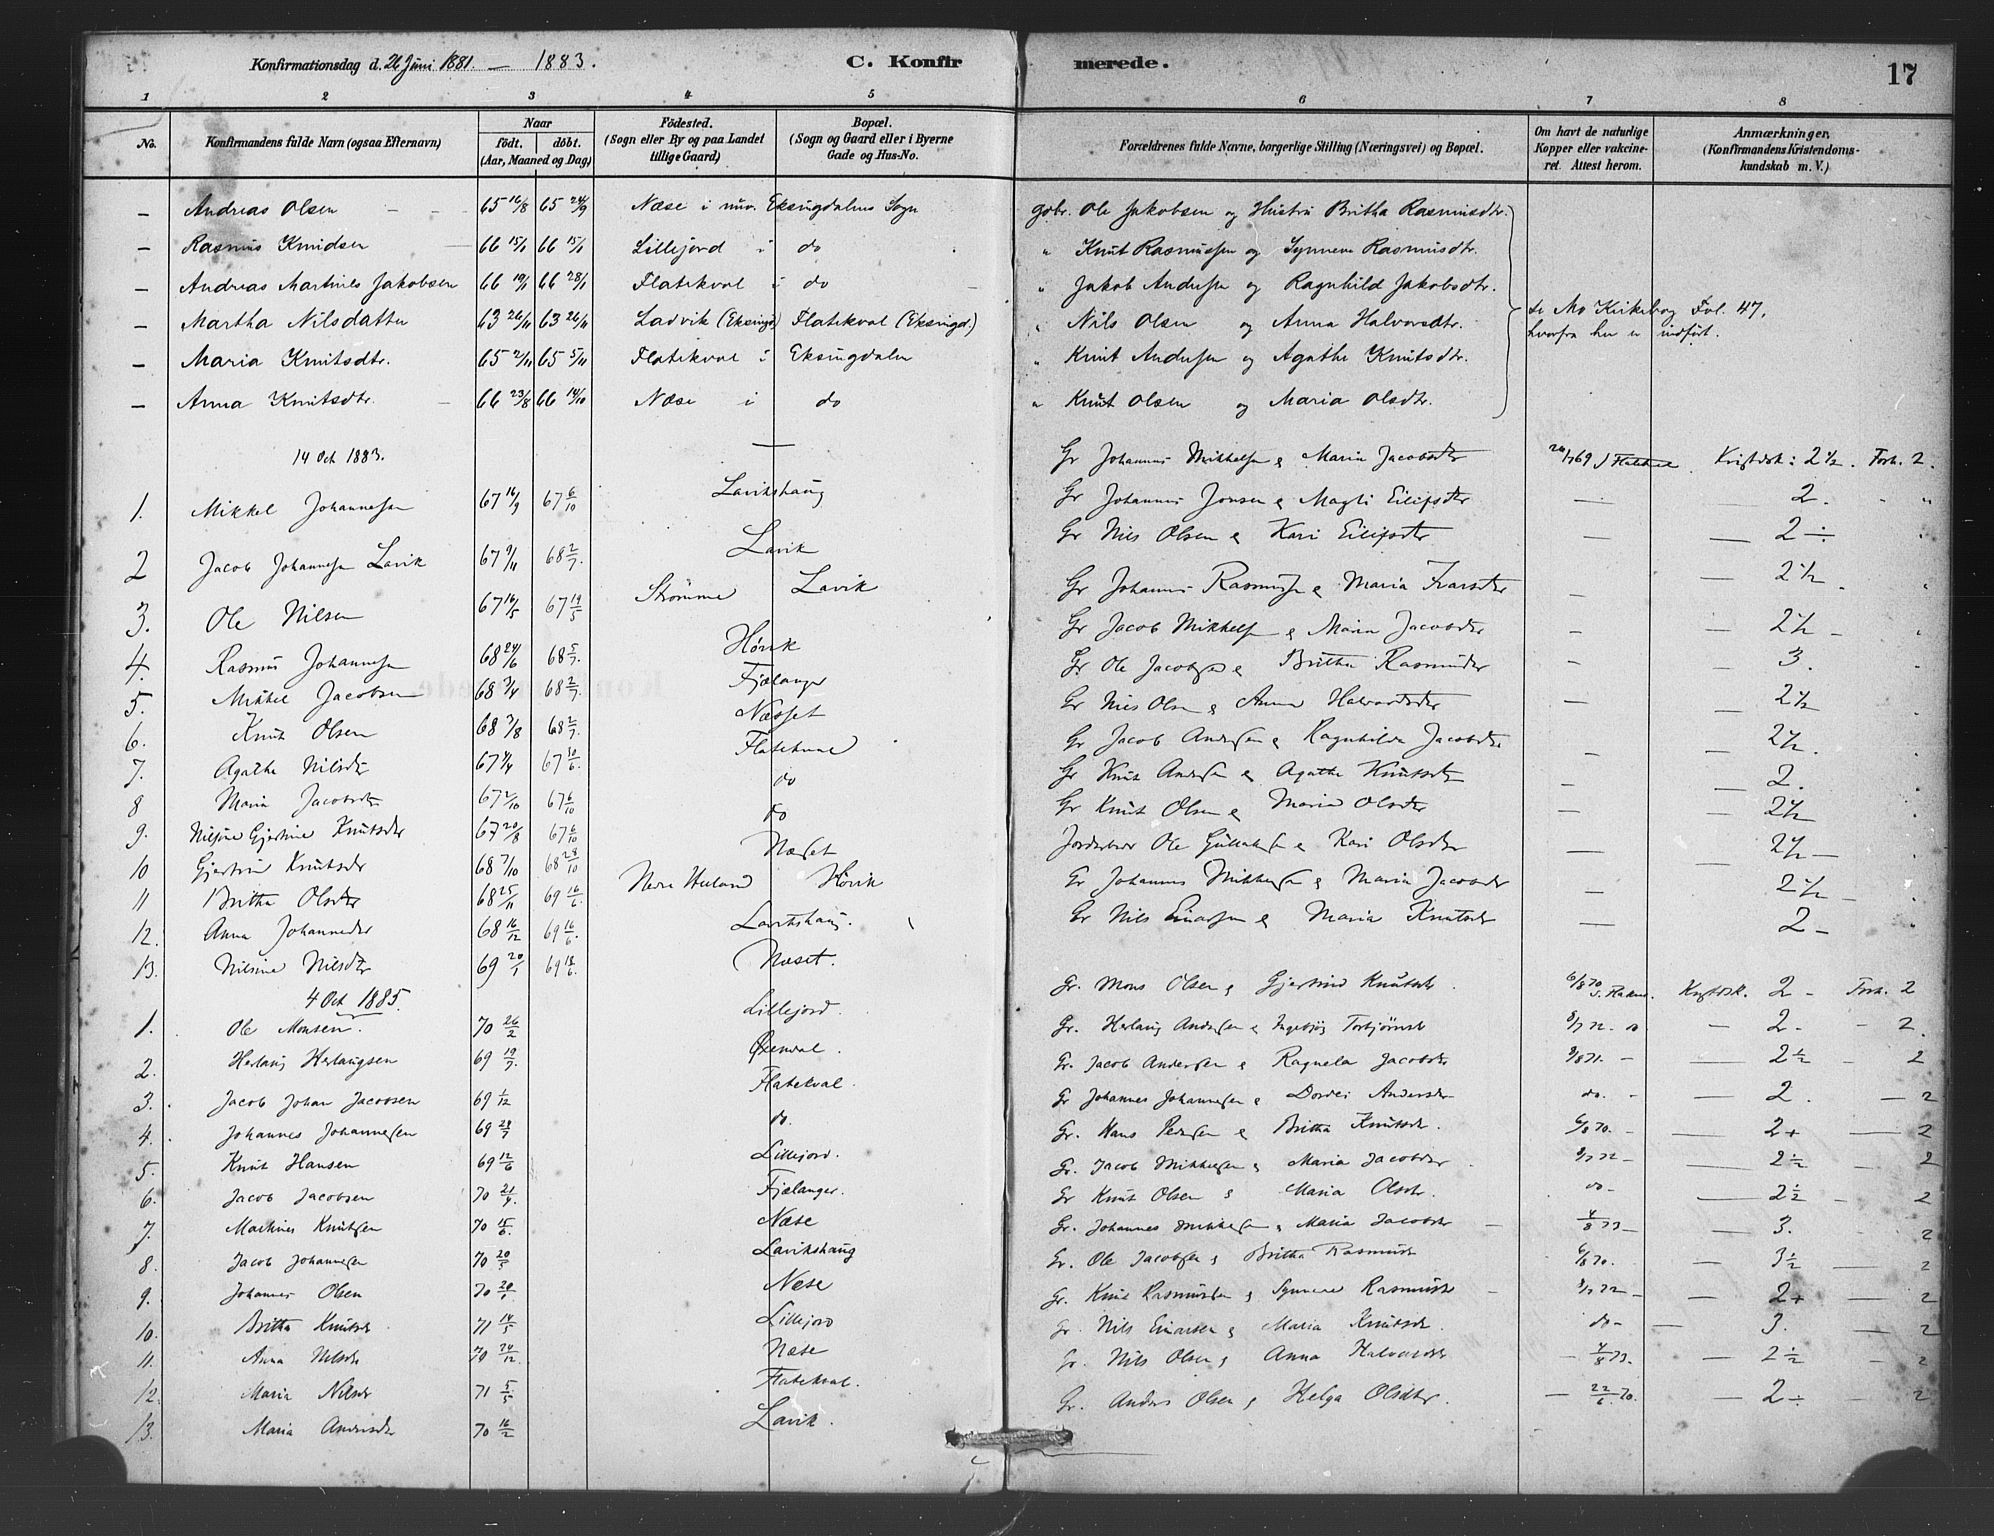 Konfirmationsdag d. 26 Juni 1881. — 1883. C. Konfirmerede. 17
1 2 3 4 5 6 7 8
No. Konfirmandens fulde Navn (ogsaa Efternavn) Naar födt. döbt. (Aar, Maaned og Dag) Födested. (Sogn eller By og paa Landet tillige Gaard) Bopæl. (Sogn og Gaard eller i Byerne Gade og Hus-No. Forældrenes fulde Navne, borgerlige Stilling (Næringsvei) og Bopæl. Om havt de naturlige Kopper eller vakcineret. Attest herom. Anmærkninger, (Konfirmandens Kristendomskundskab m. V.)
— Andreas Olsen 65 16/8 65 24/9 Næse i nuv. Eksingdalens Sogn gbr. Ole Jakobsen og Hustru Britha Rasmusdtr.
— Rasmus Knudsen 66 15/1 66 15/1 Lillejord i do " Knut Rasmussen og Synneve Rasmusdtr.
— Andreas Martines Jakobsen 66 19/1 66 28/1 Flatekval i do " Jakob Andersen og Ragnhild Jakobsdtr.
— Martha Nilsdatter 63 26/11 63 26/11 Ladvik (Eksingd) Flatekval (Eksingd.) " Nils Olsen og Anna Halvorsdtr. se Mo Kirkebog Fol. 47, hvorfra her er indført.
— Maria Knutsdtr. 65 2/11 65 5/11 Flatekval i Eksingdalen " Knut Andersen og Agathe Knutsdtr.
— Anna Knutsdtr. 66 23/8 66 14/10 Næse i do " Knut Olsen og Maria Olsdtr.
14 Oct 1883.
1. Mikkel Johannessen 67 16/9 67 6/10 Lavikshaug Gr Johannes Mikkelsen & Maria Jacobsdtr Kristdsk: 2 1/2. Forh. 2.
2 Jacob Johannessen Lavik 67 9/11 68 2/7 Lavik Gr Johannes Jonsen & Magli Eilifsdtr — 2. "
3. Ole Nilsen 67 16/5 67 19/5 Strömme Lavik Gr Nils Olsen & Kari Eilifsdtr — 2 ÷
4. Rasmus Johannessen 68 24/6 68 5/7 Hørvik Gr Johannes Rasmussen & Maria Ivarsdtr — 2 1/2
5. Mikkel Jacobsen 68 3/4 68 2/7 Fjælanger Gr Jacob Mikkelsen & Maria Jacobsdtr — 2 1/2 —
6. Knut Olsen 68 3/8 68 2/7 Næsset Gr Ole Jacobsen & Britha Rasmusdtr — 3.
7. Agathe Nilsdtr 67 4/4 67 10/6 Flatekval Gr Nils Olsen & Anna Halvorsdtr — 2 1/2
8 Maria Jacobsdtr 67 2/10 67 6/10 do Gr Jacob Andersen & Ragnhilda Jacobsdtr — 2 1/2.
9. Nilsine Gjertine Knutsdtr 67 20/8 67 6/10 do Gr Knut Andersen & Agathe Knutsdtr — 2.
10 Gjertrui Knutsdtr 68 7/10 68 28/10 Næset Gr Knut Olsen & Maria Olsdtr — 2 1/2
11 Britha Olsdtr 68 25/11 69 16/6 Nere Helland Hörvik Ole & Kari Olsdtr — 2 1/2 —
12. Anna Johannesdtr 68 16/12 69 16/6 Lavikshaug. Gr Johannes Mikkelsen & Maria Jacobsdtr — 2 1/2 —
13. Nilsine Nilsdtr 69 20/1 69 18/6 Næset. Gr Nils Einarsen & Maria Knutsdtr — 2 —
4 Oct 1885.
1. Ole Monsen. 70 26/2 Lillejord. Gr. Mons Olsen & Gjertrud Knutsdtr. 6/8 70 Kristdsk. 2 — Forh. 2
2. Herlaug Herlaugsen 69 19/7 Øxendal. Gr. Herlaug Andersen & Ingebjög Torbjørnsdtr 8/7 72. — 2 — — 2.
3. Jacob Johan Jacobsen 69 1/12 Flatekval. Gr. Jacob Andersen & Ragnela Jacobsdtr 9/8 71. — 2 1/2 — 2
4. Johannes Johannessen 69 28/7 do. Gr Johannes Johannessen & Dordei Andersdtr do. — 2. — 2
5. Knut Hansen 69 12/6 Lillejord. Gr. Hans Pedersen & Britha Knutsdtr. 6/8 70. — 2+ — 2
6. Jacob Jacobsen 70 21/4 Fjælanger. Gr. Jacob Mikkelsen & Maria Jacobsdtr 8/7 72 — 2 1/2 — 2
7. Martines Knutsen 70 15/6. Næse Gr Knut Olsen & Maria Olsdtr. do — 2 1/2 — 2
8. Jacob Johannessen 70 20/5 Lavikshaug Gr. Johannes Mikkelsen & Maria Jacobsdtr 4/8 73 — 3. 2
9. Johannes Olsen 70 20/1 Næse Gr. Ole Jacobsen & Britha Rasmusdtr 6/8 70. — 3 1/2 — 2
10. Britha Knutsdtr 71 14/5 Lillejord Gr. Knut Rasmussen & Synneve Rasmusdtr 8/7 72 — 2+ — 2
11. Anna Nilsdtr 70 24/12 Næse Gr. Nils Einarsen & Maria Knutsdtr. do — 3. — 2
12. Maria Nilsdtr 71 5/5 Flatekval. Gr. Nils Olsen & Anna Halvorsdtr — 4/8 73. — 2 1/2 2
13. Maria Andersdtr 70 16/2 Lavik. Gr. Anders Olsen & Helga Olsdtr. — 22/6 70. — 2 ÷ 2